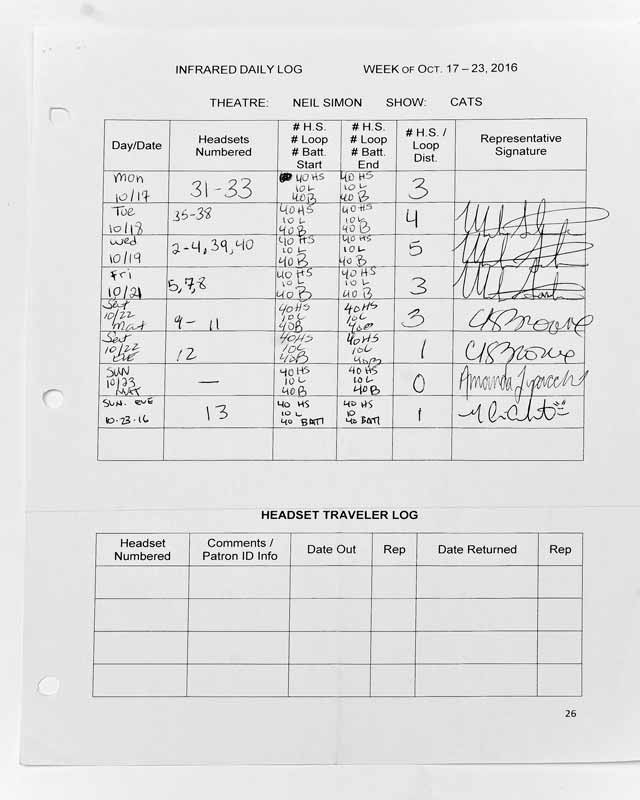 INFRARED DAILY LOG WEEK OF OCT. 17 – 23, 2016
THEATRE: NEIL SIMON SHOW: CATS
Day/Date
Headsets
Numbered
# H.S.
# Loop
# Batt.
Start
# H.S.
# Loop
# Batt.
End
# H.S. /
Loop
Dist.
Representative
Signature
Mon
10/17
31-33
40 HS
10 L
40 B
40 HS
10 L
40 B
3
Tue
10/18
35-38
40 HS
10 L
40 B
40 HS
10 L
40 B
4
Wed
10/19
2-4, 39, 40
40 HS
10 L
40 B
40 HS
10 L
40 B
5
Fri
10/21
5,7,8
40 HS
10 L
40 B
40 HS
10 L
40 B
3
Sat
10/22
Mat
9 - 11
40 HS
10 L
40 B
40 HS
10 L
40 B
3
CBBrowne
Sat
10/22
EVE
12
40 HS
10 L
40 B
40 HS
10 L
40 B
1
CBBrowne
SUN
10/23
MAT
—
40 HS
10 L
40 B
40 HS
10 L
40 B
0
Amanda
SUN. EVE
10-23-16
13
40 HS
10 L
40 BATT
40 HS
10
40 BATT
1
HEADSET TRAVELER LOG
Headset
Numbered
Comments /
Patron ID Info
Date Out
Rep
Date Returned
Rep
26